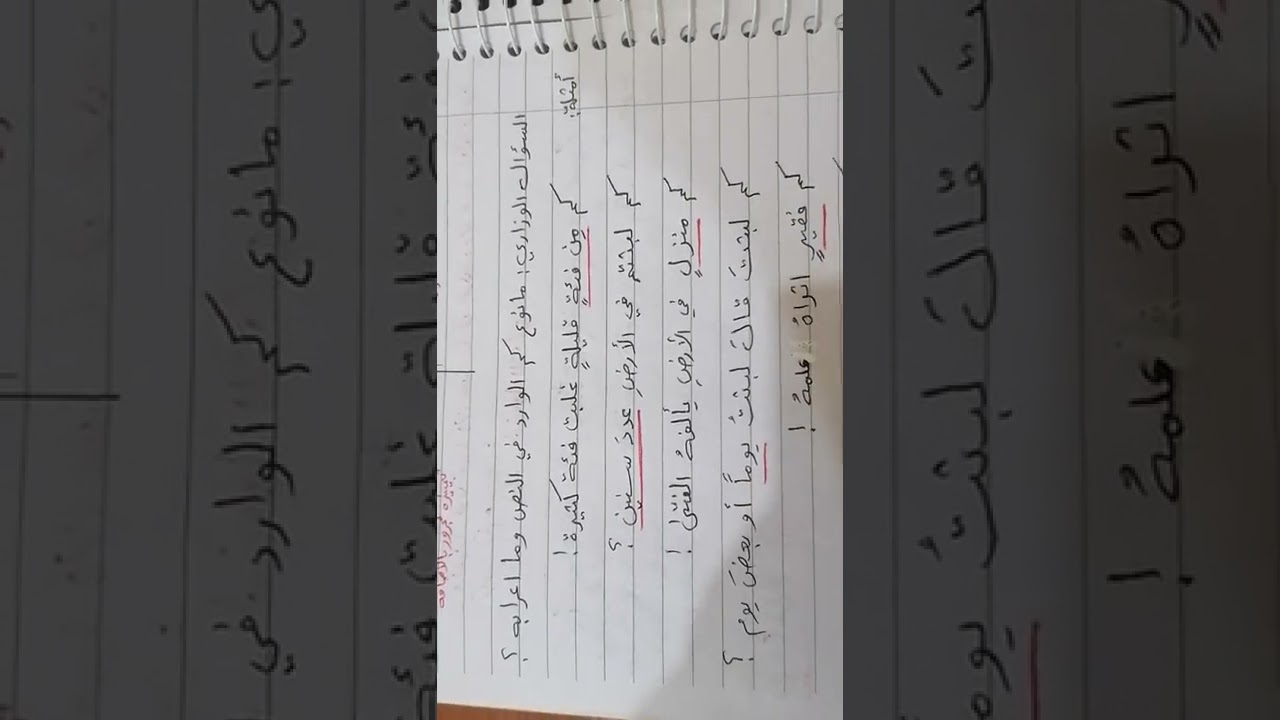 السؤال الوزاري: ما نوع كم الوارد في النص وما اعرابه؟
أمثلة:
كم مِن فئةٍ قليلةٍ غلبت فئة كثيرة!
كم لبثتم في الأرضِ عددَ سنين؟
كم منزلٍ في الأرضِ يألفهُ الفتى!
كم لبثتَ قالَ لبثتُ يوماً أو بعضَ يوم؟
كم فقيرٍ اثراهُ علمهُ!